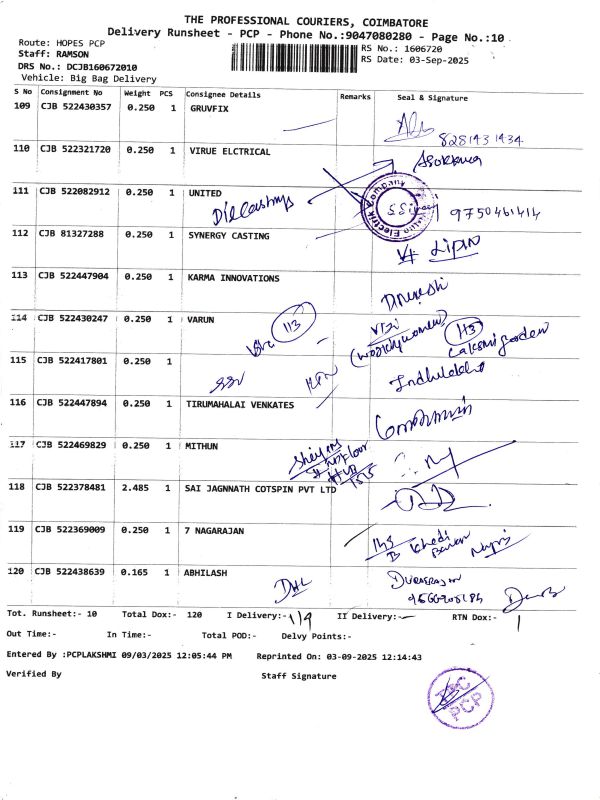 THE PROFESSIONAL COURIERS, COIMBATORE
Delivery Runsheet - PCP - Phone No.:9047080280 - Page No.:10
Route: HOPES PCP
RS No.: 1606720
Staff: RAMSON
RS Date: 03-Sep-2025
DRS No.: DCJB160672010
Vehicle: Big Bag Delivery
S No Consignment No Weight PCS Consignee Details Remarks Seal & Signature
109 CJB 522430357 0.250 1 GRUVFIX
8281431434
110 CJB 522321720 0.250 1 VIRUE ELCTRICAL
Asokkumar
111 CJB 522082912 0.250 1 UNITED
Diecastings
9750461414
112 CJB 81327288 0.250 1 SYNERGY CASTING
Lipin
113 CJB 522447904 0.250 1 KARMA INNOVATIONS
Dinesh
114 CJB 522430247 0.250 1 VARUN
113
113
115 CJB 522417801 0.250 1
116 CJB 522447894 0.250 1 TIRUMAHALAI VENKATES
117 CJB 522469829 0.250 1 MITHUN
118 CJB 522378481 2.485 1 SAI JAGNNATH COTSPIN PVT LTD
119 CJB 522369009 0.250 1 7 NAGARAJAN
120 CJB 522438639 0.165 1 ABHILASH
DHL
Tot. Runsheet:- 10 Total Dox:- 120 I Delivery:- 119 II Delivery:- RTN Dox:- 1
Out Time:- In Time:- Total POD:- Delvy Points:-
Entered By :PCPLAKSHMI 09/03/2025 12:05:44 PM Reprinted On: 03-09-2025 12:14:43
Verified By Staff Signature
PCP